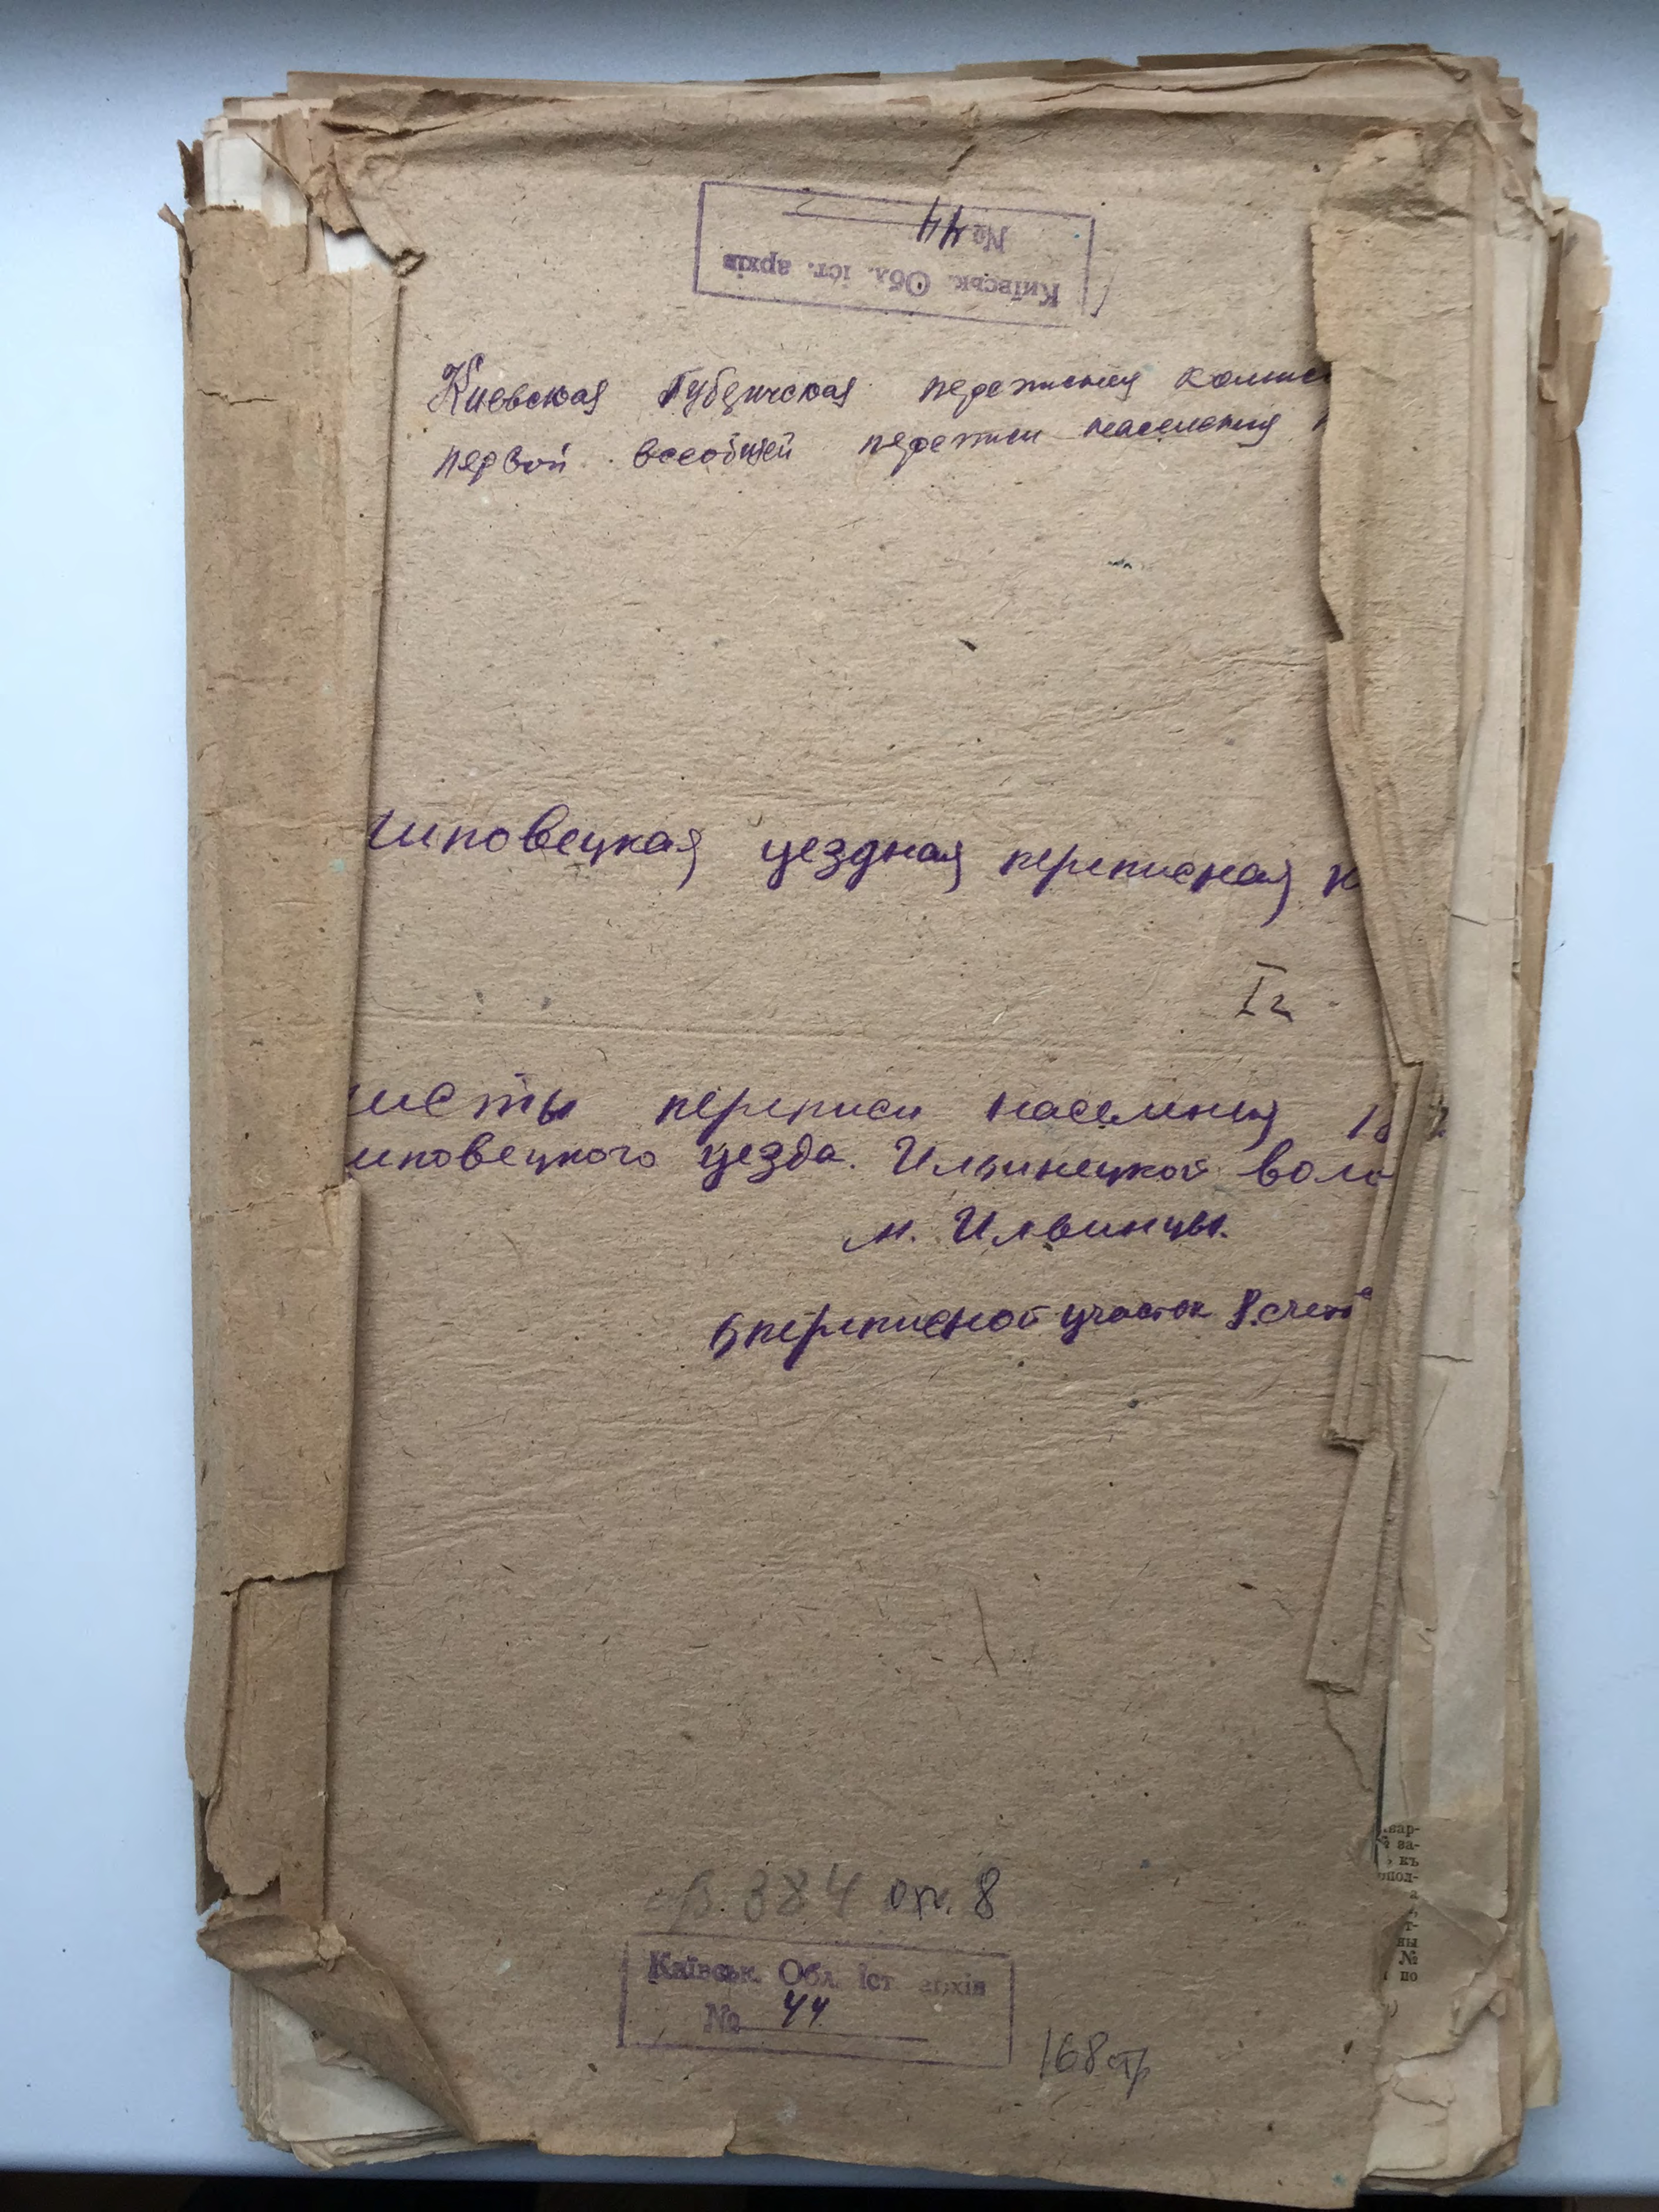 Київськ. Обл. іст. архів
№ 44
Киевская Губернская переписная комисс
первой всеобщей переписи населения
иповецкая уездная переписная к
исты переписи населения 18
иповецкого уезда. Ильинецкой воло
м. Ильинцы.
5 переписной участок 8. счетн
ф. 384 оп. 8
Київськ. Обл. іст архів
№ 44
168 стр
вар-
за-
къ
пол-
а
т-
ны
№
по